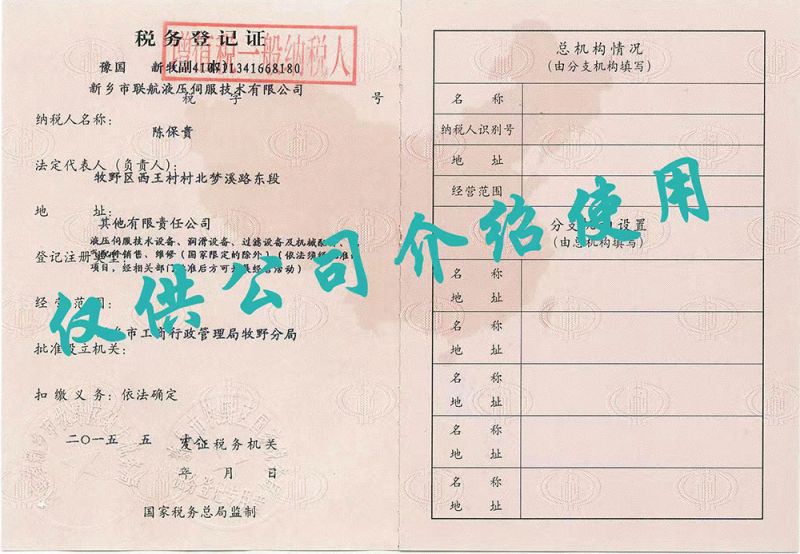 税务登记证
增值税一般纳税人
豫国 新牧(副本) 410711341668180
新乡市联航液压伺服技术有限公司
税 字 号
纳税人名称：
陈保贵
法定代表人（负责人）：
牧野区西王村村北梦溪路东段
地 址：
其他有限责任公司
液压伺服技术设备、润滑设备、过滤设备及机械
销售、维修（国家限定的除外）（依法须经
登记注册类型：
项目，经相关部门 准后方可 经营活动）
经营范围：
市工商行政管理局牧野分局
批准设立机关：
扣缴义务：依法确定
二〇一五 五
发征税务机关
年 月 日
国家税务总局监制
仅供公司介绍使用
总机构情况
（由分支机构填写）
名 称
纳税人识别号
地 址
经营范围
分支机构设置
（由总机构填写）
名 称
地 址
名 称
地 址
名 称
地 址
名 称
地 址
名 称
地 址